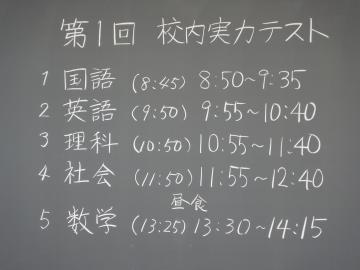 第1回 校内実力テスト
1 国語 (8:45) 8:50~9:35
2 英語 (9:50) 9:55~10:40
3 理科 (10:50) 10:55~11:40
4 社会 (11:50) 11:55~12:40
昼食
5 数学 (13:25) 13:30~14:15